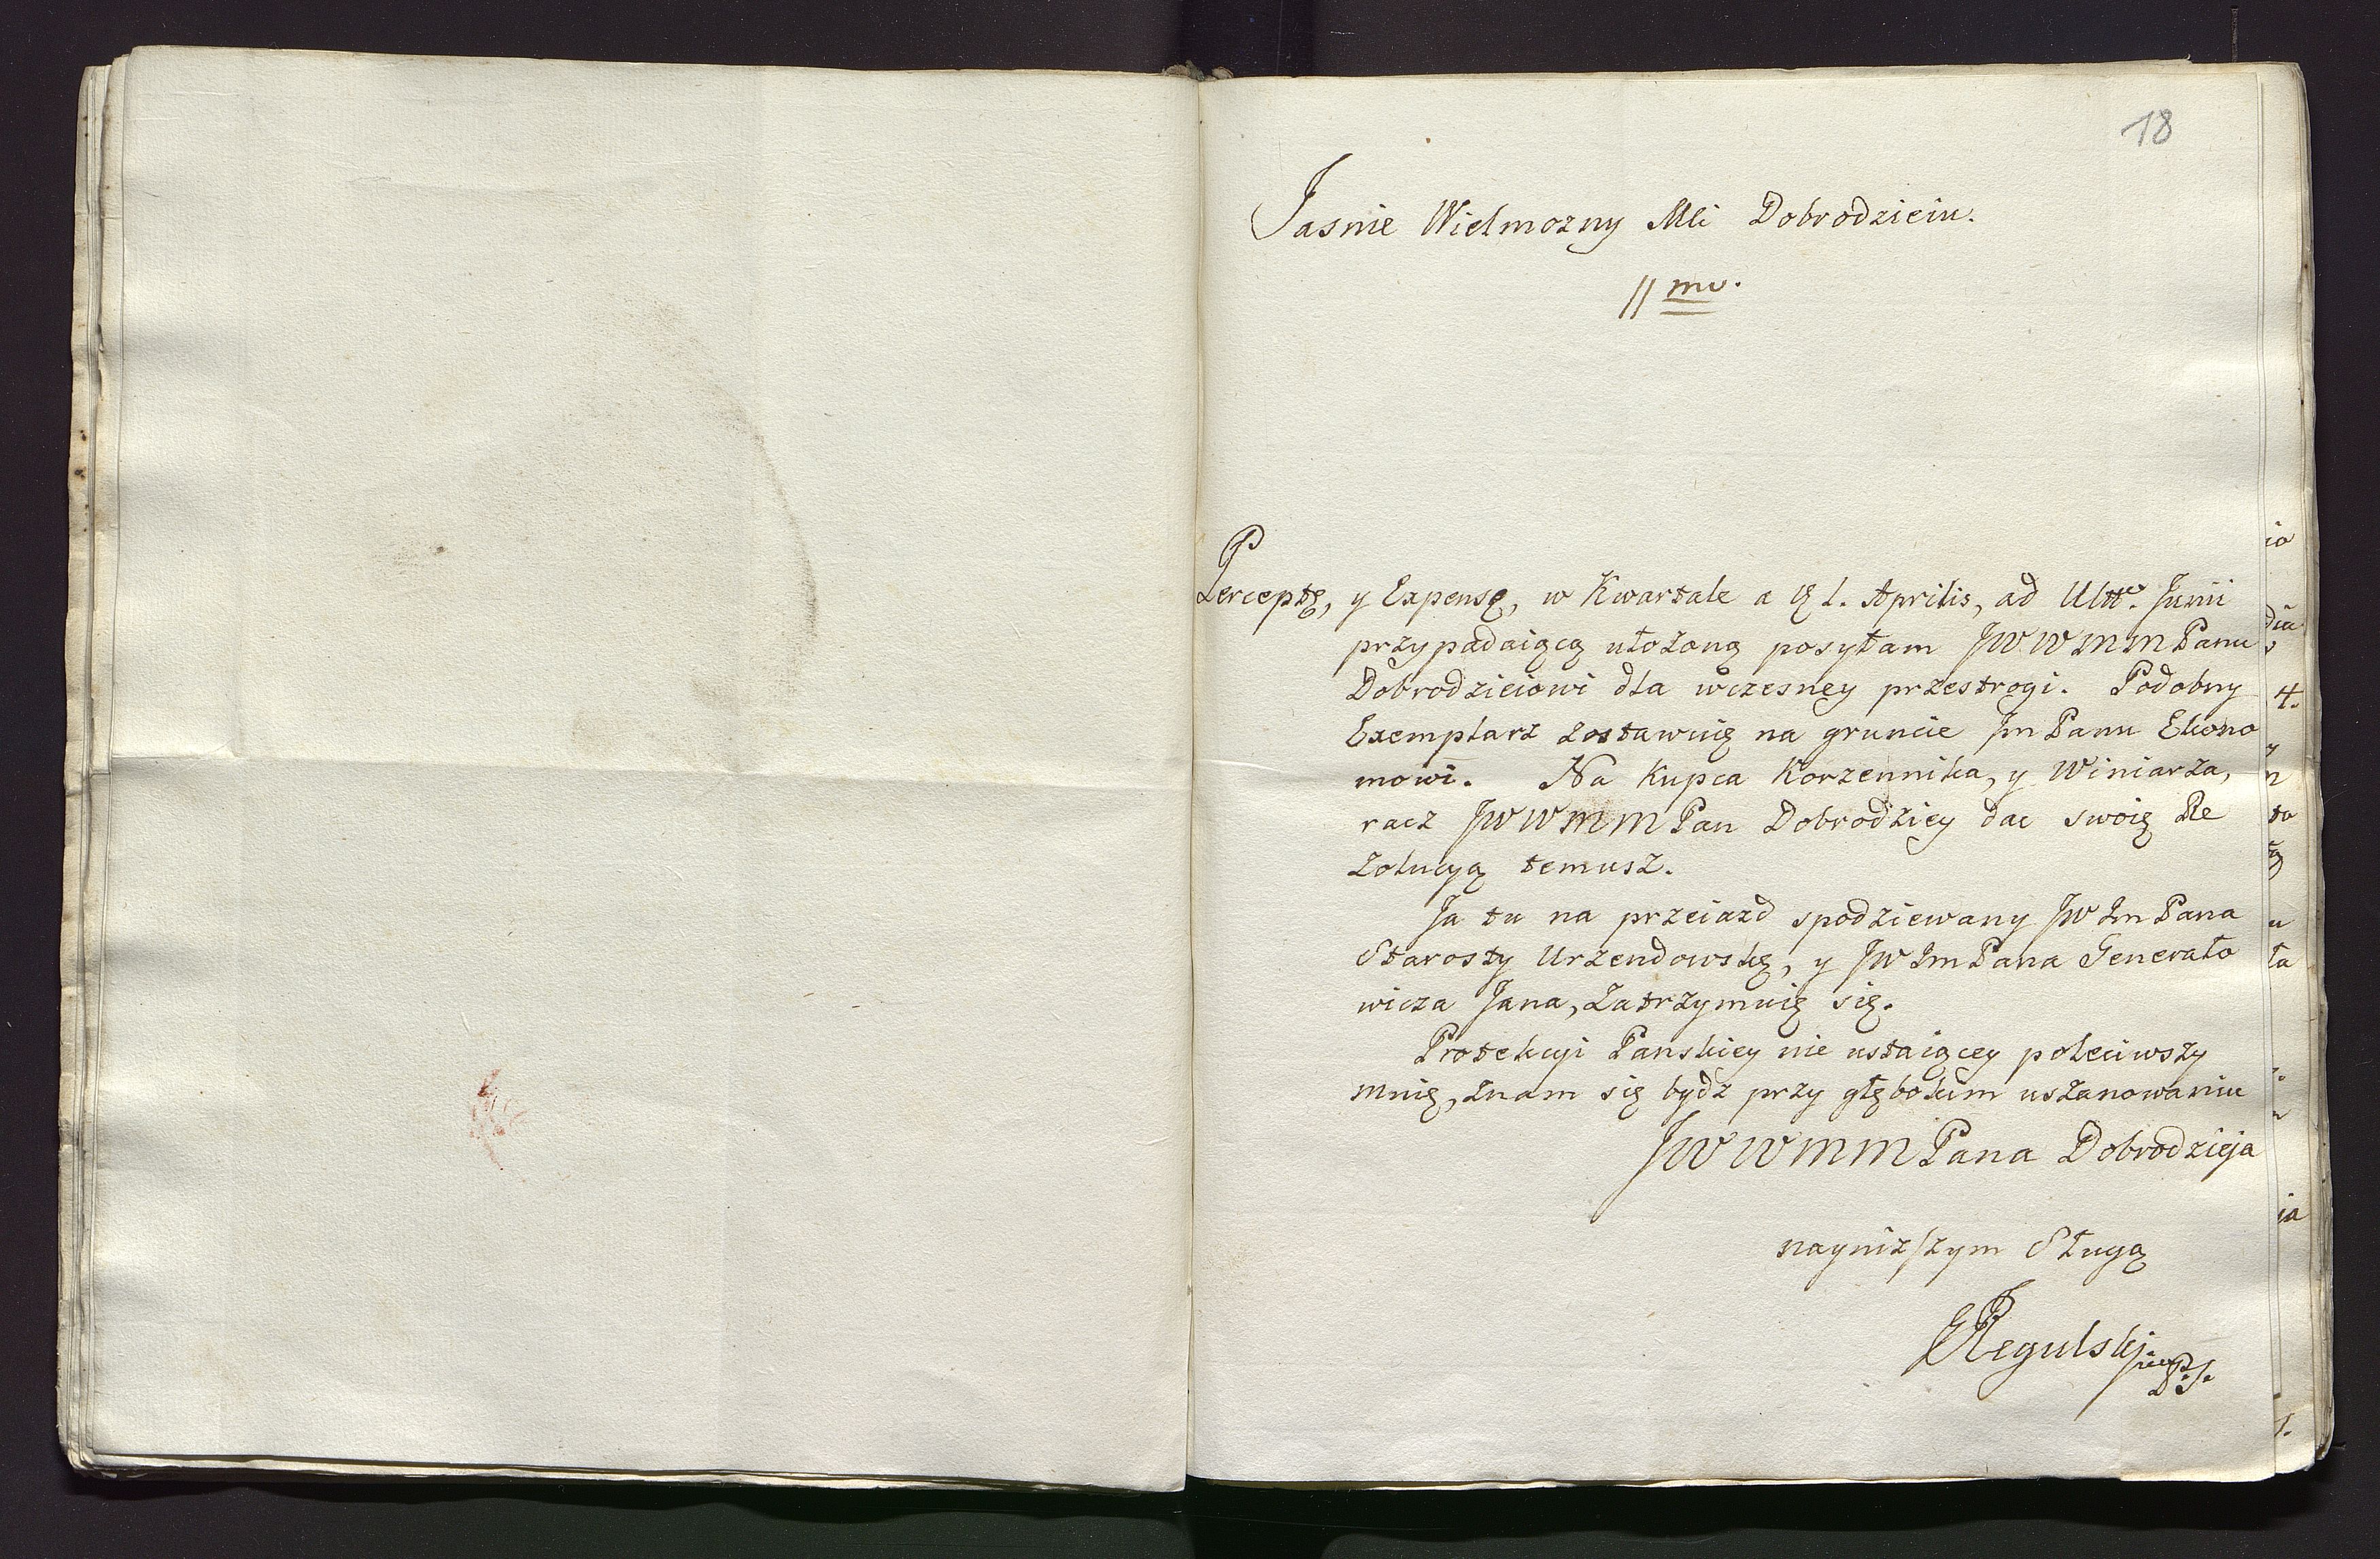 18
Jasnie Wielmozny Mci Dobrodzieiu.
Perceptę, y Expensę, w Kwartale a 1. Aprilis, ad Ult. Junii
przypadaiącą ułożoną posyłam JWWMMPanu
Dobrodzieiowi dla wczesney przestrogi. Podobny
Exemplarz zostawuię na gruncie Jm Panu Ekono
mowi. Na Kupca Korzennika, y Winiarza,
racz JWWMMPan Dobrodziey dac swoię Re
zolucyą temusz.
Ja tu na przeiazd spodziewany JW Jm Pana
Starosty Urzendowskę, y JW Jm Pana Generało
wicza Jana, zatrzymuię się.
Protekcyi Panskiey nie ustaiącey poleciwszy
mnię, znam się bydz przy głębokim uszanowaniu
JWWMMPana Dobrodzieja
naynizszym Sługą
Regulski